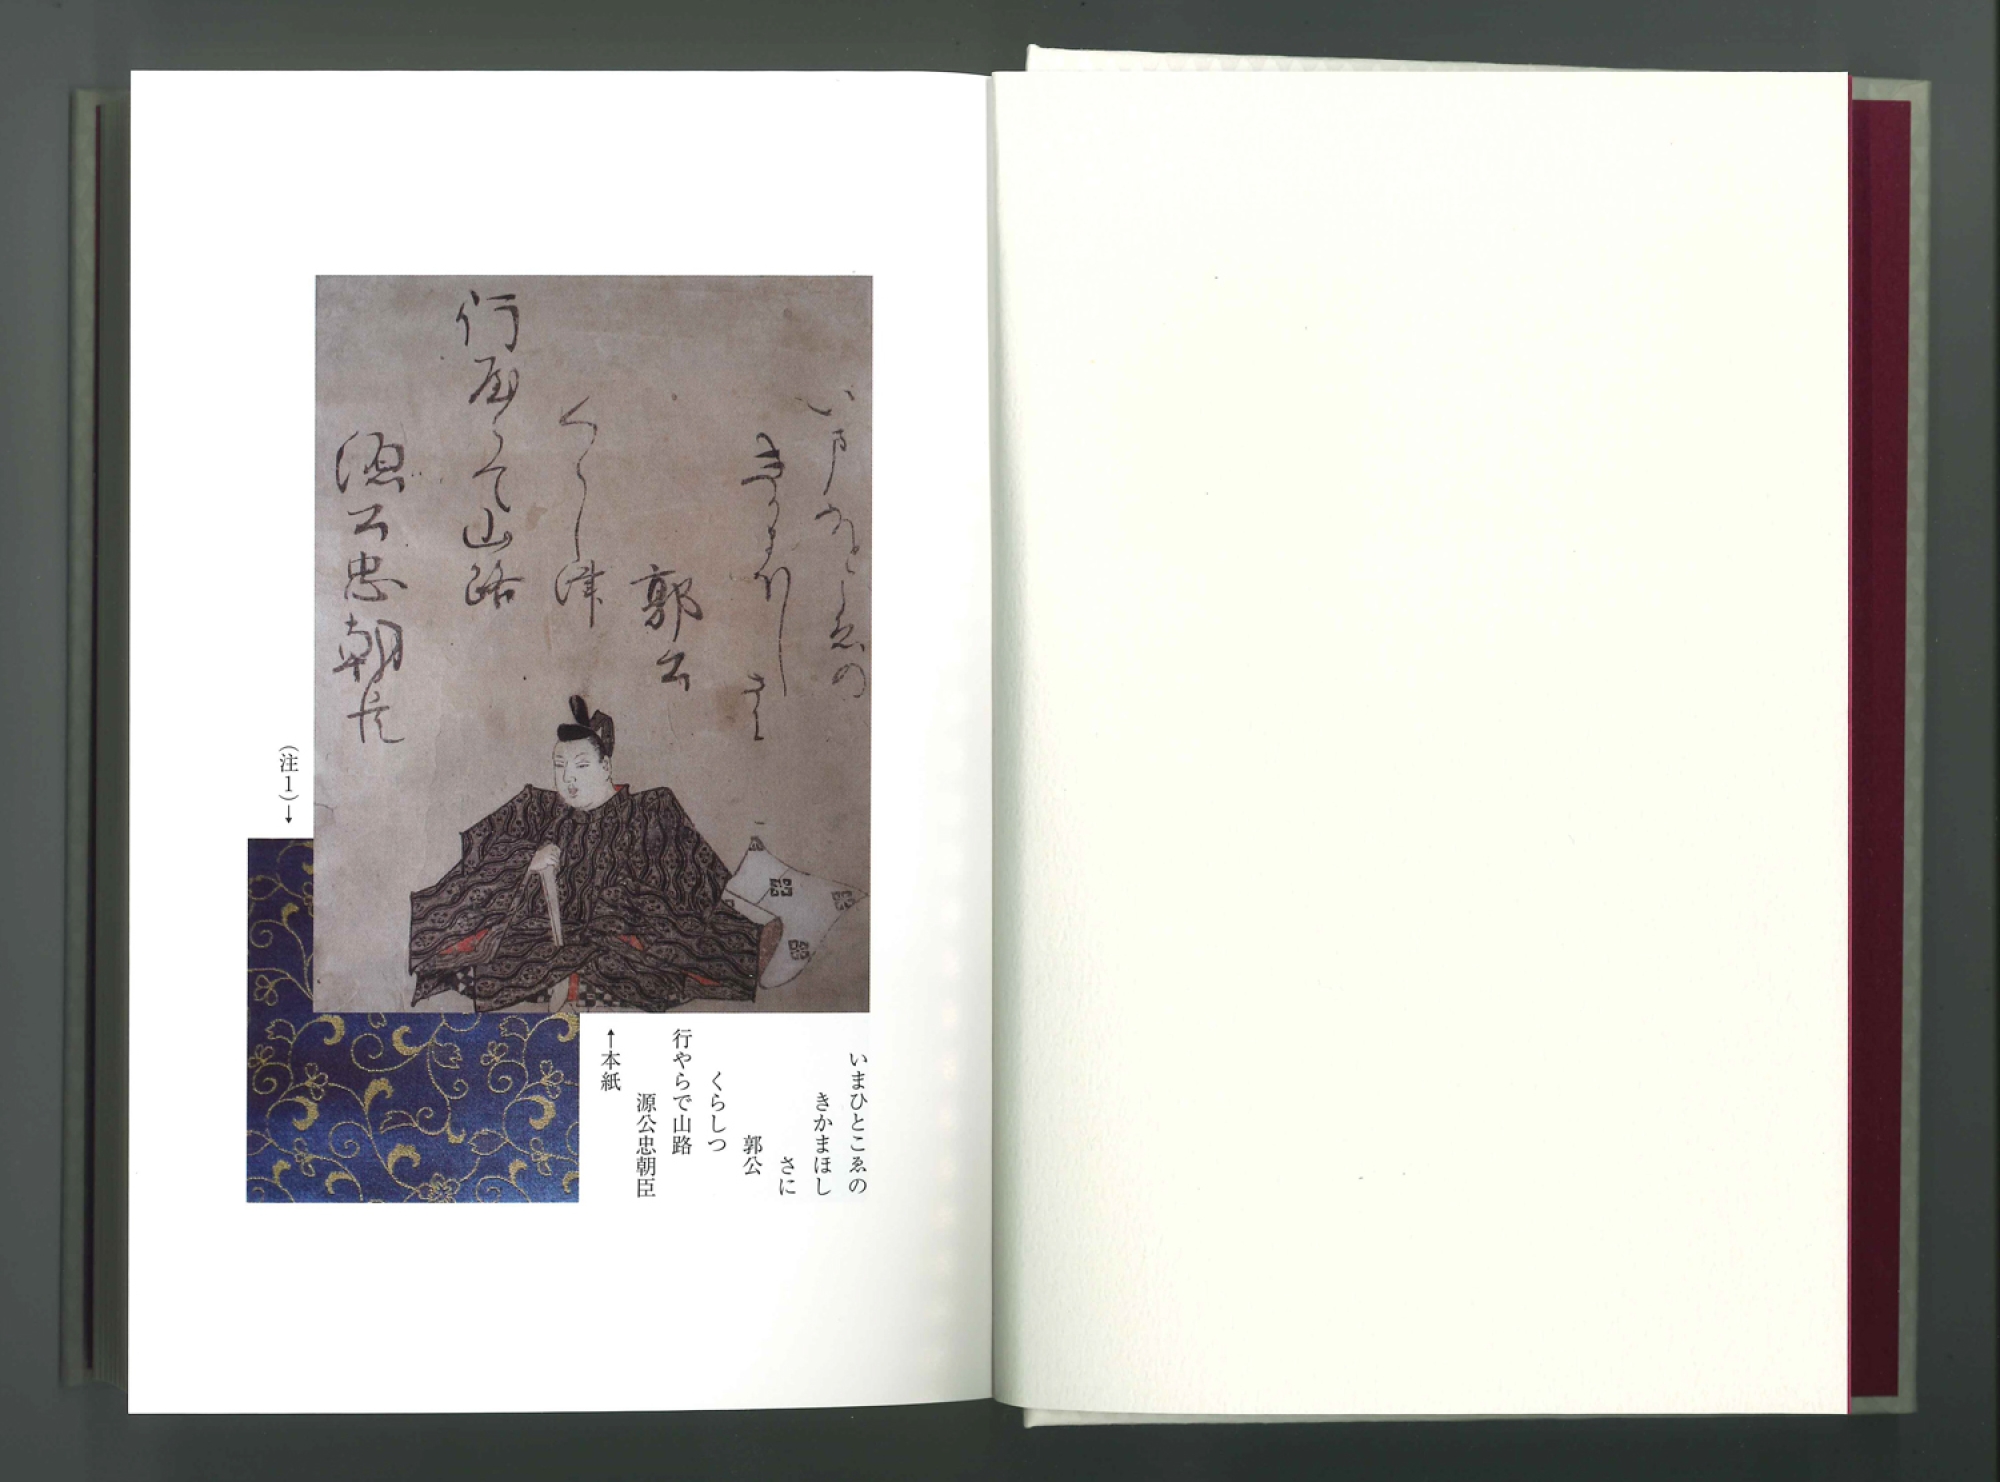 いまひとこゑの
きかまほし
さに
郭公
くらしつ
行やらで山路
源公忠朝臣
(注1)→
いまひとこゑの
きかまほし
さに
郭公
くらしつ
行やらで山路
源公忠朝臣
↑本紙